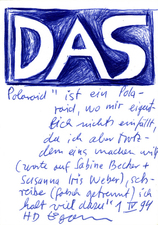 DAS
Polaroid" ist ein Pola-
roid, wo mir eigent
lich nichts einfällt
da ich aber trotz-
dem eins machen will
(warte auf Sabine Becker +
Susanna Iris Weber), sch-
reibe (falsch getrennt) ich
halt viel dazu" 1 IV 94
HD